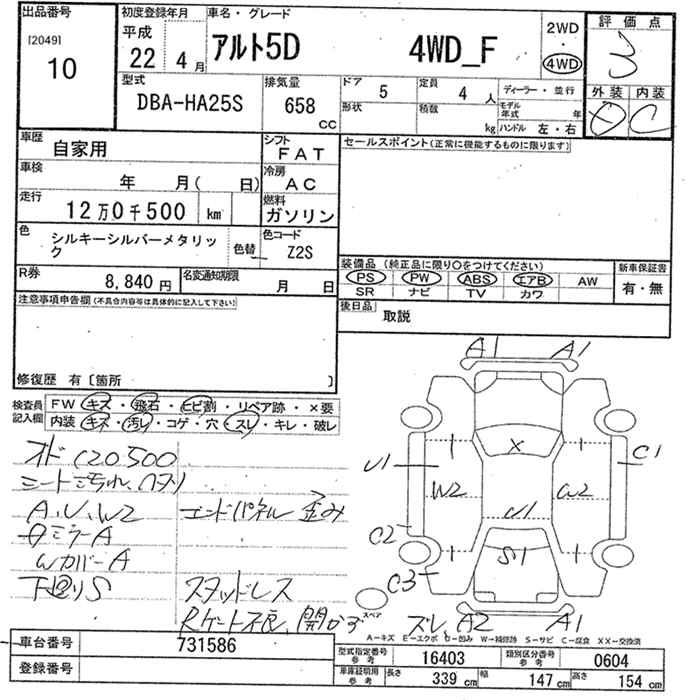 出品番号
[2049]
10
初度登録年月
平成
22 4 月
車名・グレード
アルト5D 4WD_F
2WD
・
4WD
評価点
3
外装 内装
D C
型式
DBA-HA25S
排気量
658 CC
ドア 5
形状
定員 4 人
積載 kg
ディーラー・並行
モデル年式 年
ハンドル 左・右
車歴
自家用
シフト
FAT
セールスポイント(正常に機能するものに限ります)
車検
年 月( 日)
冷房
AC
走行
12万0千500 km
燃料
ガソリン
色
シルキーシルバーメタリック
色替
色コード
Z2S
装備品(純正品に限り○をつけてください)
PS PW ABS エアB AW
SR ナビ TV カワ
新車保証書
有・無
R券
8,840円
名変通知期限
月 日
後日品
取説
注意事項申告欄(不具合内容等は具体的に記入して下さい)
修復歴 有〔箇所 〕
検査員記入欄
FW キズ・飛石・ヒビ割・リペア跡・×要
内装 キズ・汚レ・コゲ・穴・スレ・キレ・破レ
オド 120500
シート汚れ、ヘタリ
A、U、W2 エンドパネル歪み
ミラーA
WカバーA
下廻りS スタッドレス
Rゲート不良、開かず
A1 A1
U1 X C1
W2 U1 W2
C2 S1
C3
スペア
ズレ、A2 A1
A-キズ E-エクボ U-凹み W-補修跡 S-サビ C-腐食 XX-交換済
車台番号 731586
登録番号
型式指定番号参考 16403
類別区分番号参考 0604
車庫証明用参考 長さ 339 cm 幅 147 cm 高さ 154 cm